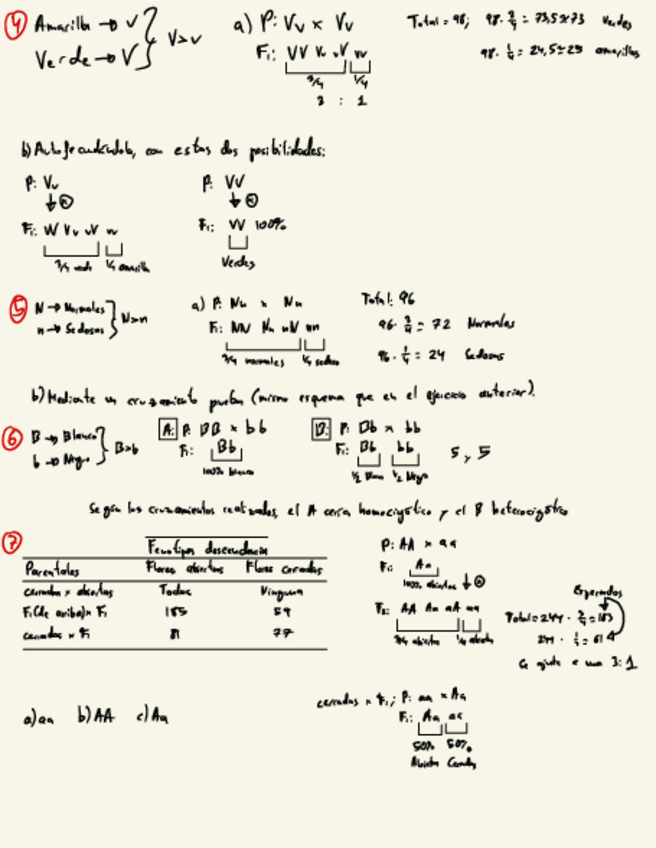 4 Amarillo → v
Verde → V
V>v
a) P: Vv x Vv
F1: VV Vv vV vv
3/4 1/4
3 : 1
Total = 98; 98· 3/4 = 73,5≈73 verdes
98· 1/4 = 24,5≈25 amarillos
b) Autofecundándola, con estas dos posibilidades:
P: Vv
↓ⓧ
F1: VV Vv vV vv
3/4 verde 1/4 amarilla
P: VV
↓ⓧ
F1: VV 100%
Verdes
5 N → Normales
n → Sedosas
N>n
a) P: Nn x Nn
F1: NN Nn nN nn
3/4 normales 1/4 sedoso
Total: 96
96· 3/4 = 72 Normales
96· 1/4 = 24 Sedosas
b) Mediante un cruzamiento prueba (mismo esquema que en el ejercicio anterior).
6 B → Blanco
b → Negro
B>b
A: P: BB x bb
F1: Bb
100% blanco
B: P: Bb x bb
F1: Bb bb
1/2 Blanco 1/2 Negro
5 y 5
Según los cruzamientos realizados, el A sería homocigótico y el B heterocigótico
7 Fenotipos descendencia
Parentales Flores abiertas Flores Cerradas
cerradas x abiertas Todas Ninguna
F1(de arriba)x F1 185 59
cerradas x F1 81 77
P: AA x aa
F1: Aa
100% abiertas ↓ⓧ
F2: AA Aa aA aa
3/4 abierta 1/4 abierta
Esperados
Total=244· 3/4 = 183
244· 1/4 = 61
Se ajusta a una 3:1
a) aa b) AA c) Aa
cerradas x F1; P: aa x Aa
F1: Aa aa
50% 50%
Abiertas Cerradas